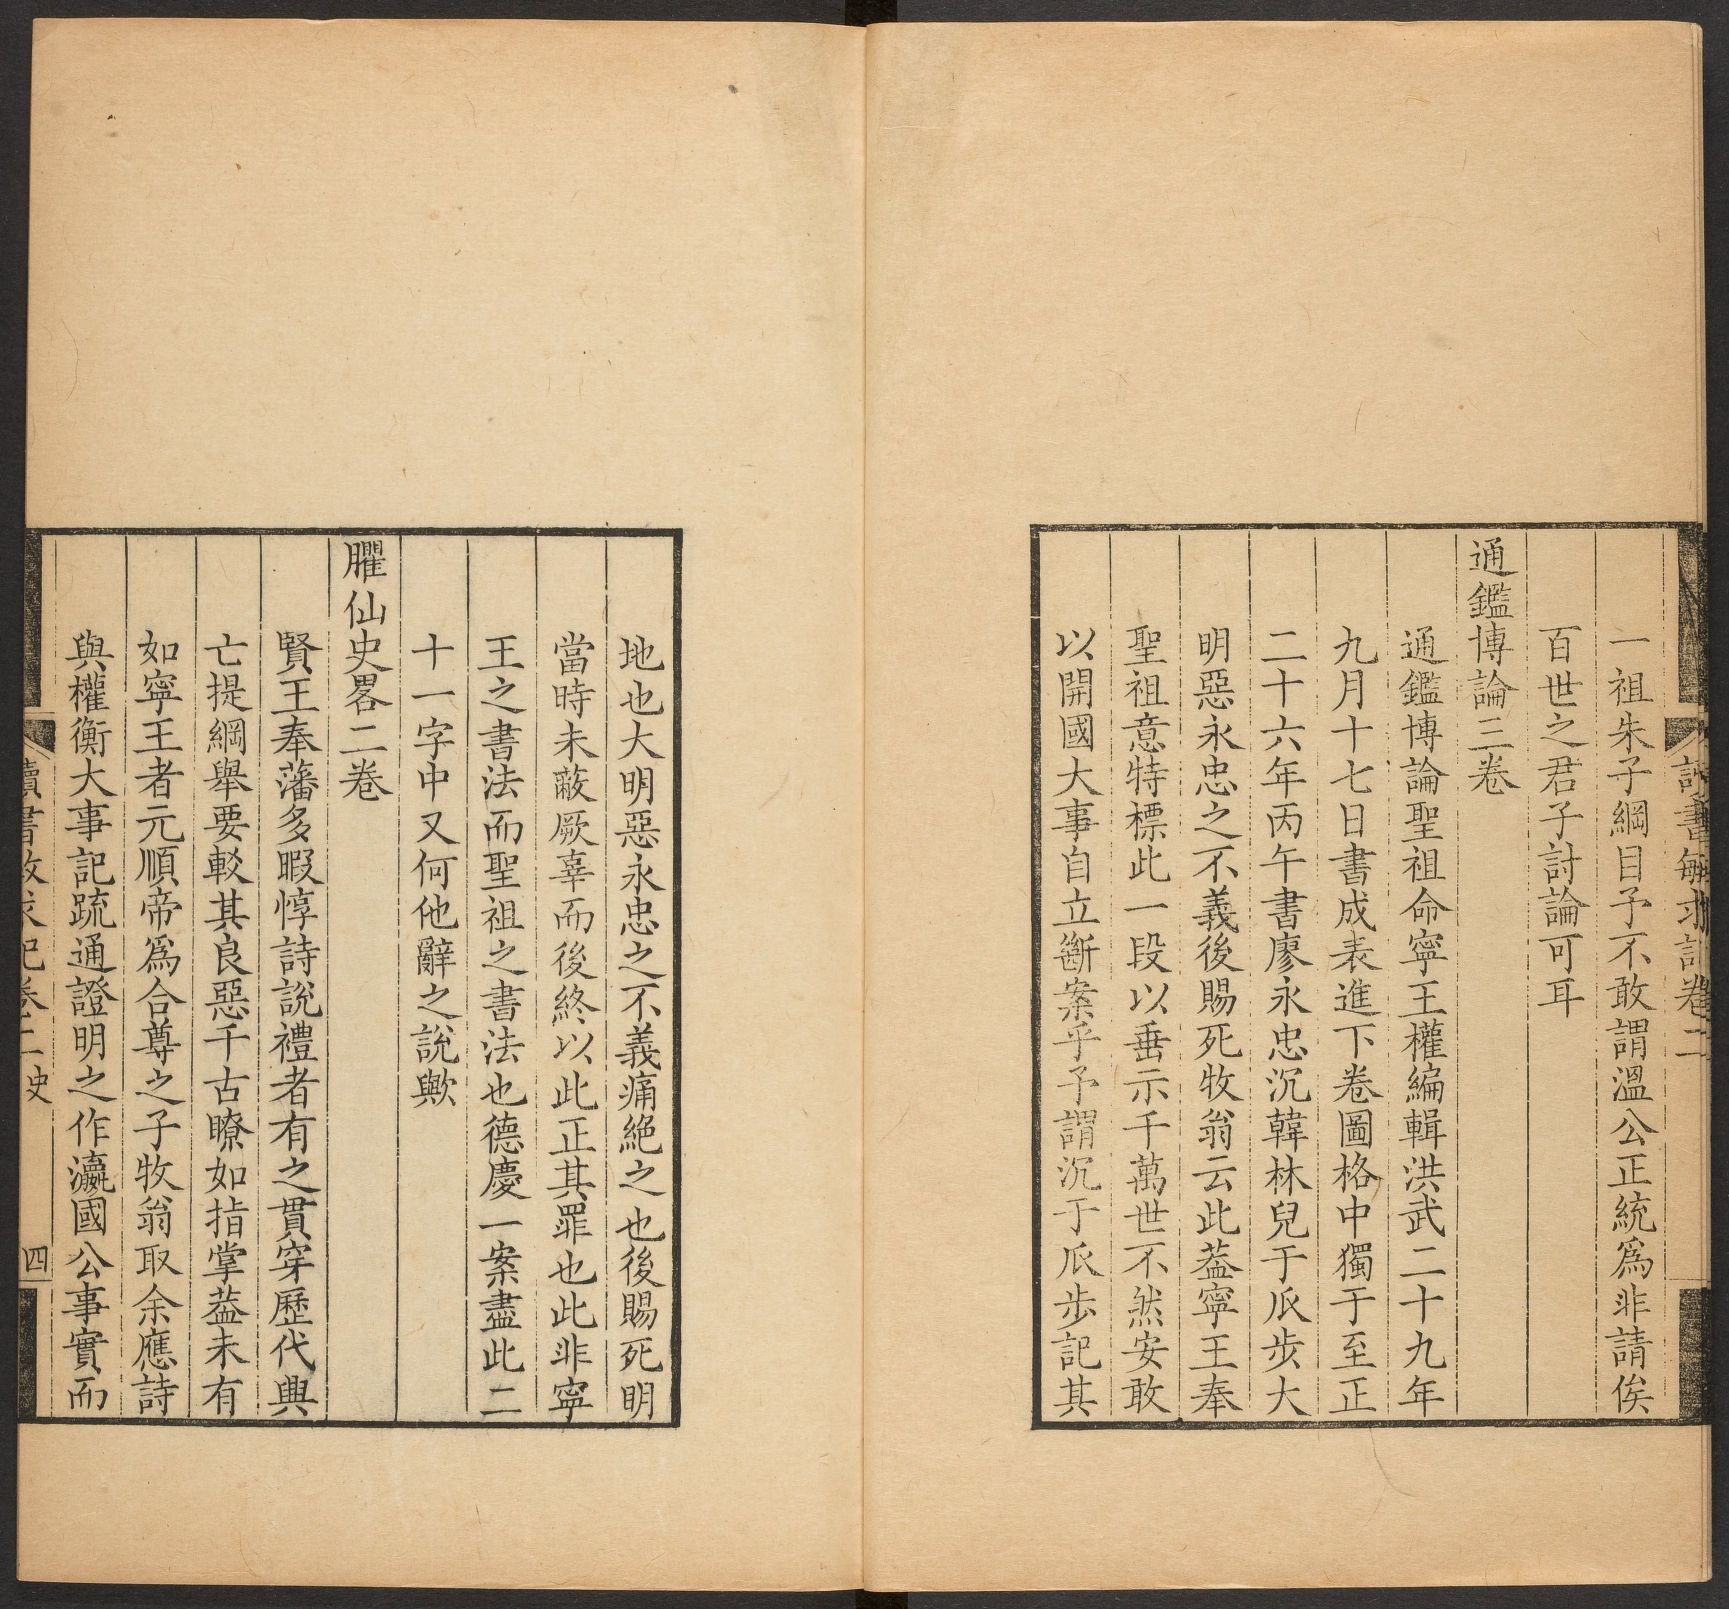 讀書敏求記卷二
一祖朱子綱目予不敢謂溫公正統爲非請俟
百世之君子討論可耳
通鑑博論三卷
通鑑博論聖祖命寧王權編輯洪武二十九年
九月十七日書成表進下卷圖格中獨于至正
二十六年丙午書廖永忠沉韓林兒于瓜步大
明惡永忠之不義後賜死牧翁云此葢寧王奉
聖祖意特標此一段以垂示千萬世不然安敢
以開國大事自立斷案乎予謂沉于瓜步記其
地也大明惡永忠之不義痛絶之也後賜死明
當時未蔽厥辜而後終以此正其罪也此非寧
王之書法而聖祖之書法也德慶一案盡此二
十一字中又何他辭之說歟
臞仙史畧二卷
賢王奉藩多暇惇詩說禮者有之貫穿歷代興
亡提綱舉要較其良惡千古瞭如指掌葢未有
如寧王者元順帝爲合尊之子牧翁取余應詩
與權衡大事記疏通證明之作瀛國公事實而
讀書敏求記卷二史
四